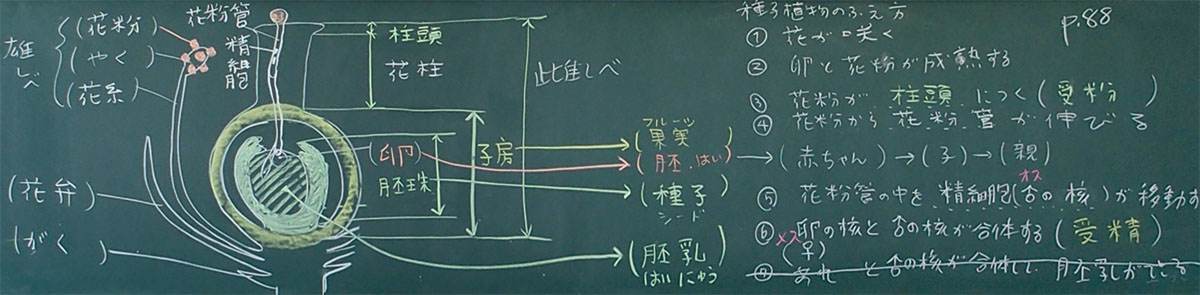 雄しべ
(花粉)
(やく)
(花糸)
花粉管
精細胞
柱頭
花柱
雌しべ
子房
(卵)
胚珠
フルーツ
(果実)
(胚.はい)→(赤ちゃん)→(子)→(親)
(種子)
シード
(胚乳)
はいにゅう
(花弁)
(がく)
種子植物のふえ方
p.88
① 花が咲く
② 卵と花粉が成熟する
③ 花粉が 柱頭 につく(受粉)
④ 花粉から 花粉管 が伸びる
オス
⑤ 花粉管の中を 精細胞(♂の核)が移動す
メス
⑥ 卵の核と♂の核が合体する(受精)
(♀)
と♂の核が合体して 胚乳ができる